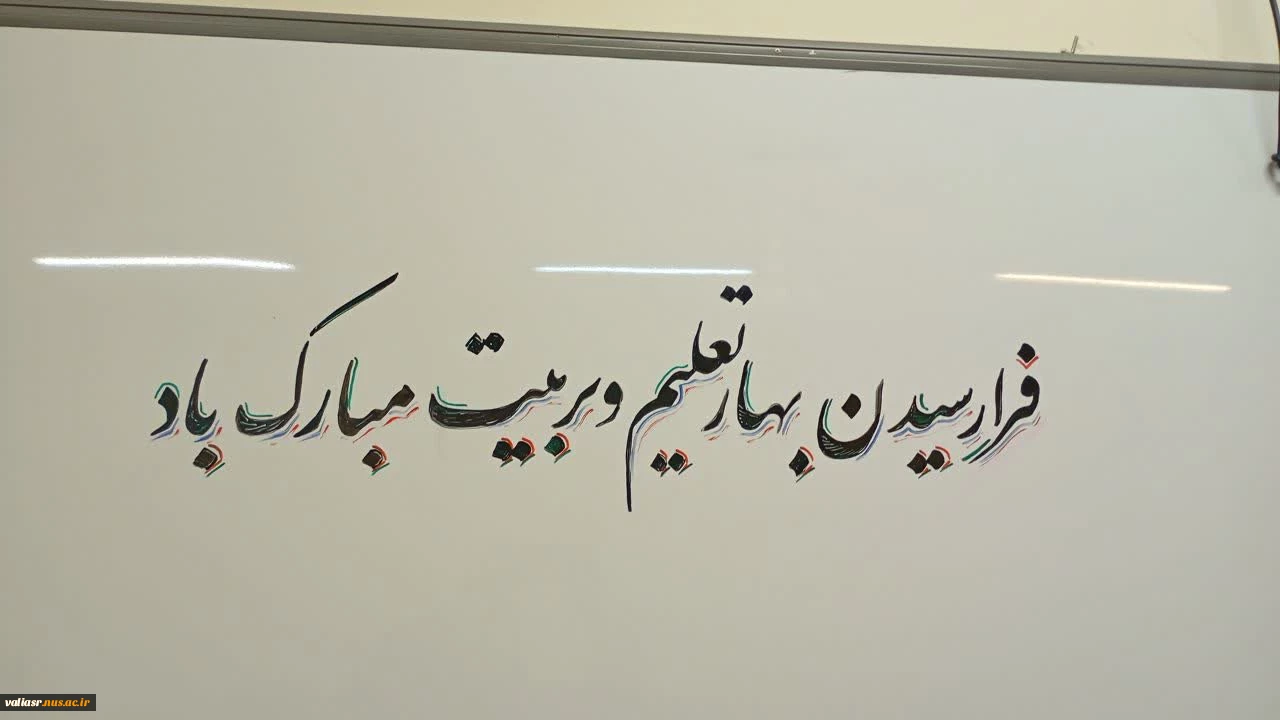 فرارسیدن بهار تعلیم و تربیت مبارک باد
valiasr.nus.ac.ir